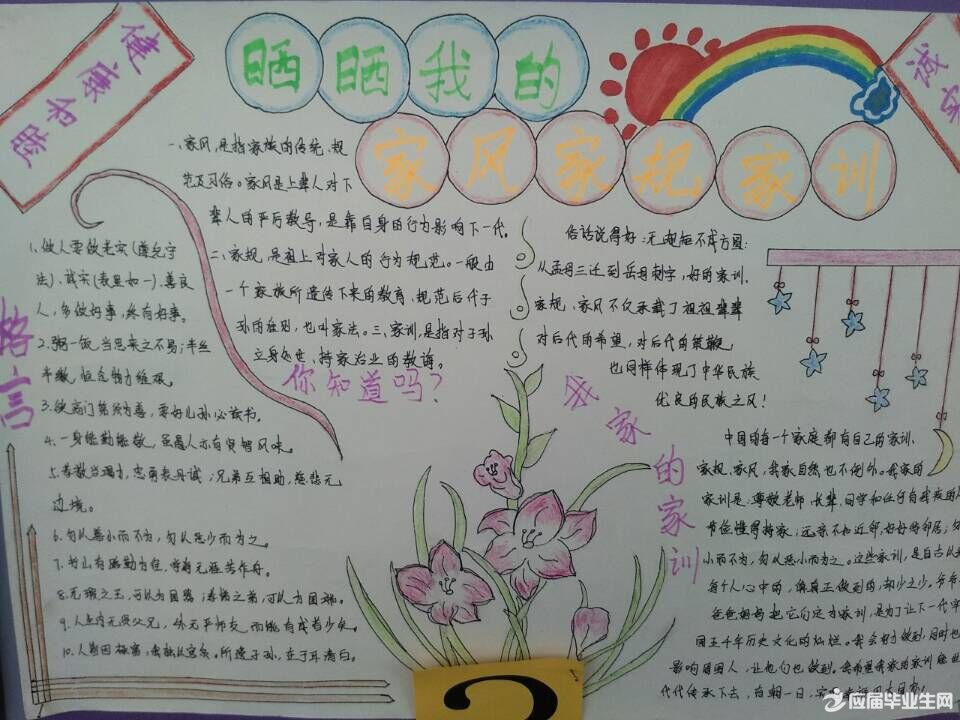 健康和谐
诚实
晒晒我的
家风家规家训
一、家风,是指家族的传统、规
范及习俗。家风是上辈人对下
辈人的严厉教导,是靠自身的行为影响下一代。
二、家规,是祖上对家人的行为规范。一般由
一个家族所遗传下来的教育、规范后代子
孙的准则,也叫家法。三、家训,是指对子孙
立身处世、持家治业的教诲。
你知道吗?
俗话说得好:无规矩不成方圆:
从孟母三迁到岳母刺字,好的家训、
家规、家风不仅承载了祖祖辈辈
对后代的希望,对后代的鞭鞭,
也同样体现了中华民族
优良的民族之风!
格言
1.做人要做老实(遵纪守
法)、诚实(表里如一)、善良
人,多做好事,终有好事。
2.粥一饭,当思来之不易;半丝
半缕,恒念物力维艰。
3.欲高门第须为善,要好儿孙必读书。
4.一身能勤能敬,虽愚人亦有贤智风味。
5.孝敬当竭力,忠勇表丹诚;兄弟互相助,慈悲无
边境。
6.勿以善小而不为,勿以恶少而为之。
7.书山有路勤为径,学海无涯苦作舟。
8.无瑕之玉,可以为国器;孝悌之弟,可以为国瑞。
9.人生内无贤父兄,外无严师友,而能有成者少矣。
10.人
我家的家训
中国的每一个家庭都有自己的家训、
家规、家风,我家自然也不例外。我家的
家训是:尊敬老师、长辈、同学和任何
节俭懂得持家;远亲不如近邻,好好待邻居;勿
小而不为,勿以恶小而为之。这些家训,是自古以
每个人心中的,但真正做到的,却少之少。爷爷
爸爸妈妈把它们定为家训,是为了让下一代
国五千年历史文化的灿烂。我会努力做到,同时也
影响周围人,让他们也做到。我希望我家的家训能
代代传承下去,
?
应届毕业生网